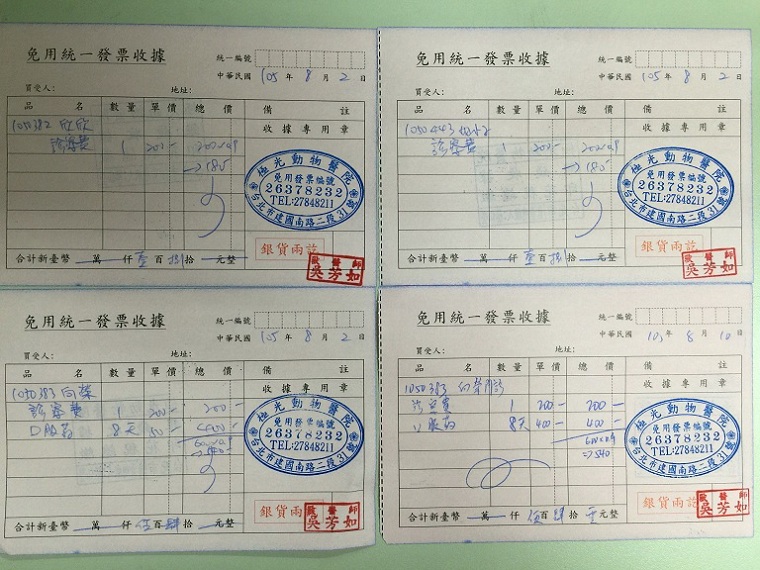 免用統一發票收據
統一編號
中華民國 105 年 8 月 2 日
買受人： 地址：
品 名 數量 單價 總價 備 註
1050382 欣欣 收據專用章
診察費 1 200- 200×0.9
→180
極光動物醫院
免用發票編號
26378232
TEL:27848211
台北市建國南路二段31號
銀貨兩訖
獸醫師
吳芳如
合計新臺幣 萬 仟 壹 百 捌 拾 元整
免用統一發票收據
統一編號
中華民國 105 年 8 月 2 日
買受人： 地址：
品 名 數量 單價 總價 備 註
1050443 收據專用章
診察費 1 200- 200×0.9
→180
極光動物醫院
免用發票編號
26378232
TEL:27848211
台北市建國南路二段31號
銀貨兩訖
獸醫師
吳芳如
合計新臺幣 萬 仟 壹 百 捌 拾 元整
免用統一發票收據
統一編號
中華民國 105 年 8 月 2 日
買受人： 地址：
品 名 數量 單價 總價 備 註
1050383 向榮 收據專用章
診察費 1 200- 200-
口服藥 8天 50- 400-
600×0.9
→540
極光動物醫院
免用發票編號
26378232
TEL:27848211
台北市建國南路二段31號
銀貨兩訖
獸醫師
吳芳如
合計新臺幣 萬 仟 伍 百 肆 拾 元整
免用統一發票收據
統一編號
中華民國 105 年 8 月 10 日
買受人： 地址：
品 名 數量 單價 總價 備 註
1050383 向榮 收據專用章
診察費 1 200- 200-
口服藥 8天 400- 400-
600×0.9
⇒540
極光動物醫院
免用發票編號
26378232
TEL:27848211
台北市建國南路二段31號
銀貨兩訖
獸醫師
吳芳如
合計新臺幣 萬 仟 伍 百 肆 拾 零 元整